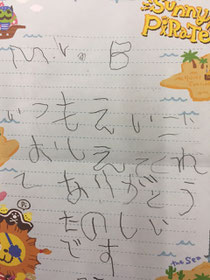 Sunny
PiRATE
Mr. B
いつもえいご
おしえてくれ
てありがとう
たのしい
です
the Sea